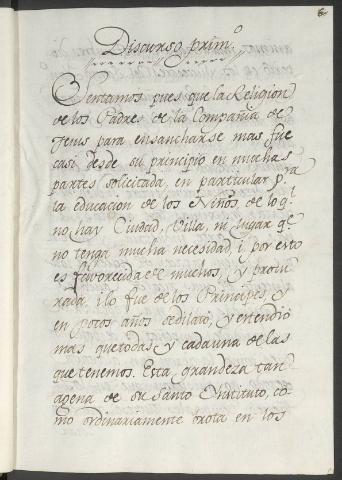 6
Discurso prim.o
Sentamos pues que la Religion
de los Padres de la Compañia de
Jesus para ensancharse mas fue
casi desde su principio en muchas
partes solicitada, en particular pra
la educacion de los Niños, de lo q.l
no hay Ciudad, Villa, ni lugar q.e
no tenga mucha necesidad, i por esto
es favorecida de muchos, y procu
rada, i lo fue de los Principes, y
en pocos años se dilató, y estendió
mas que todas y cada una de las
que tenemos. Esta grandeza tan
agena de su Santo Instituto, co
mo ordinariamente brota en los